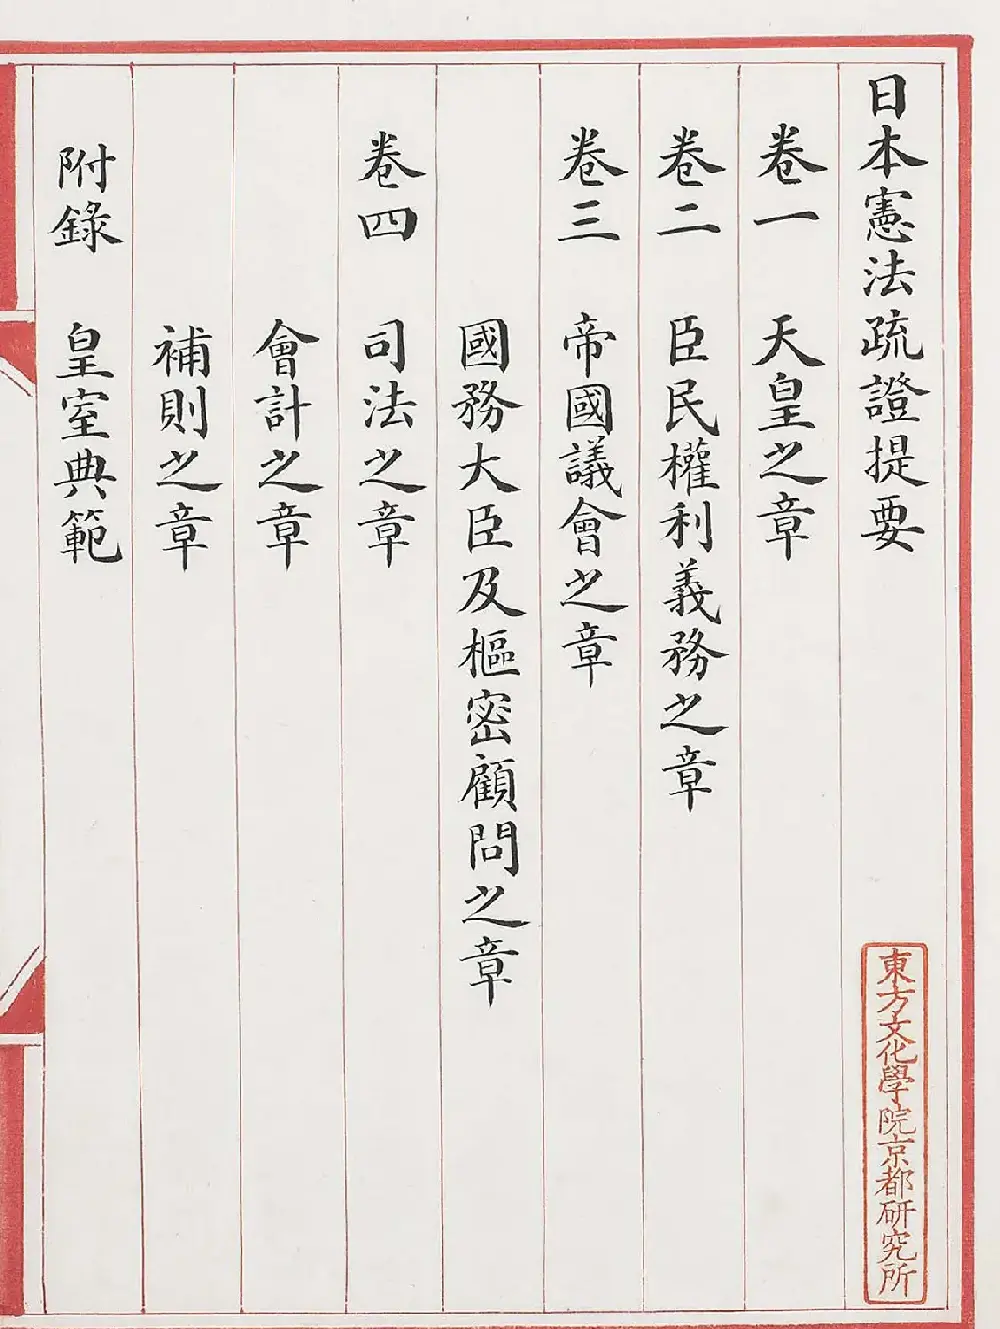 日本憲法疏證提要
卷一 天皇之章
卷二 臣民權利義務之章
卷三 帝國議會之章
國務大臣及樞密顧問之章
卷四 司法之章
會計之章
補則之章
附錄 皇室典範
東方文化學院京都研究所